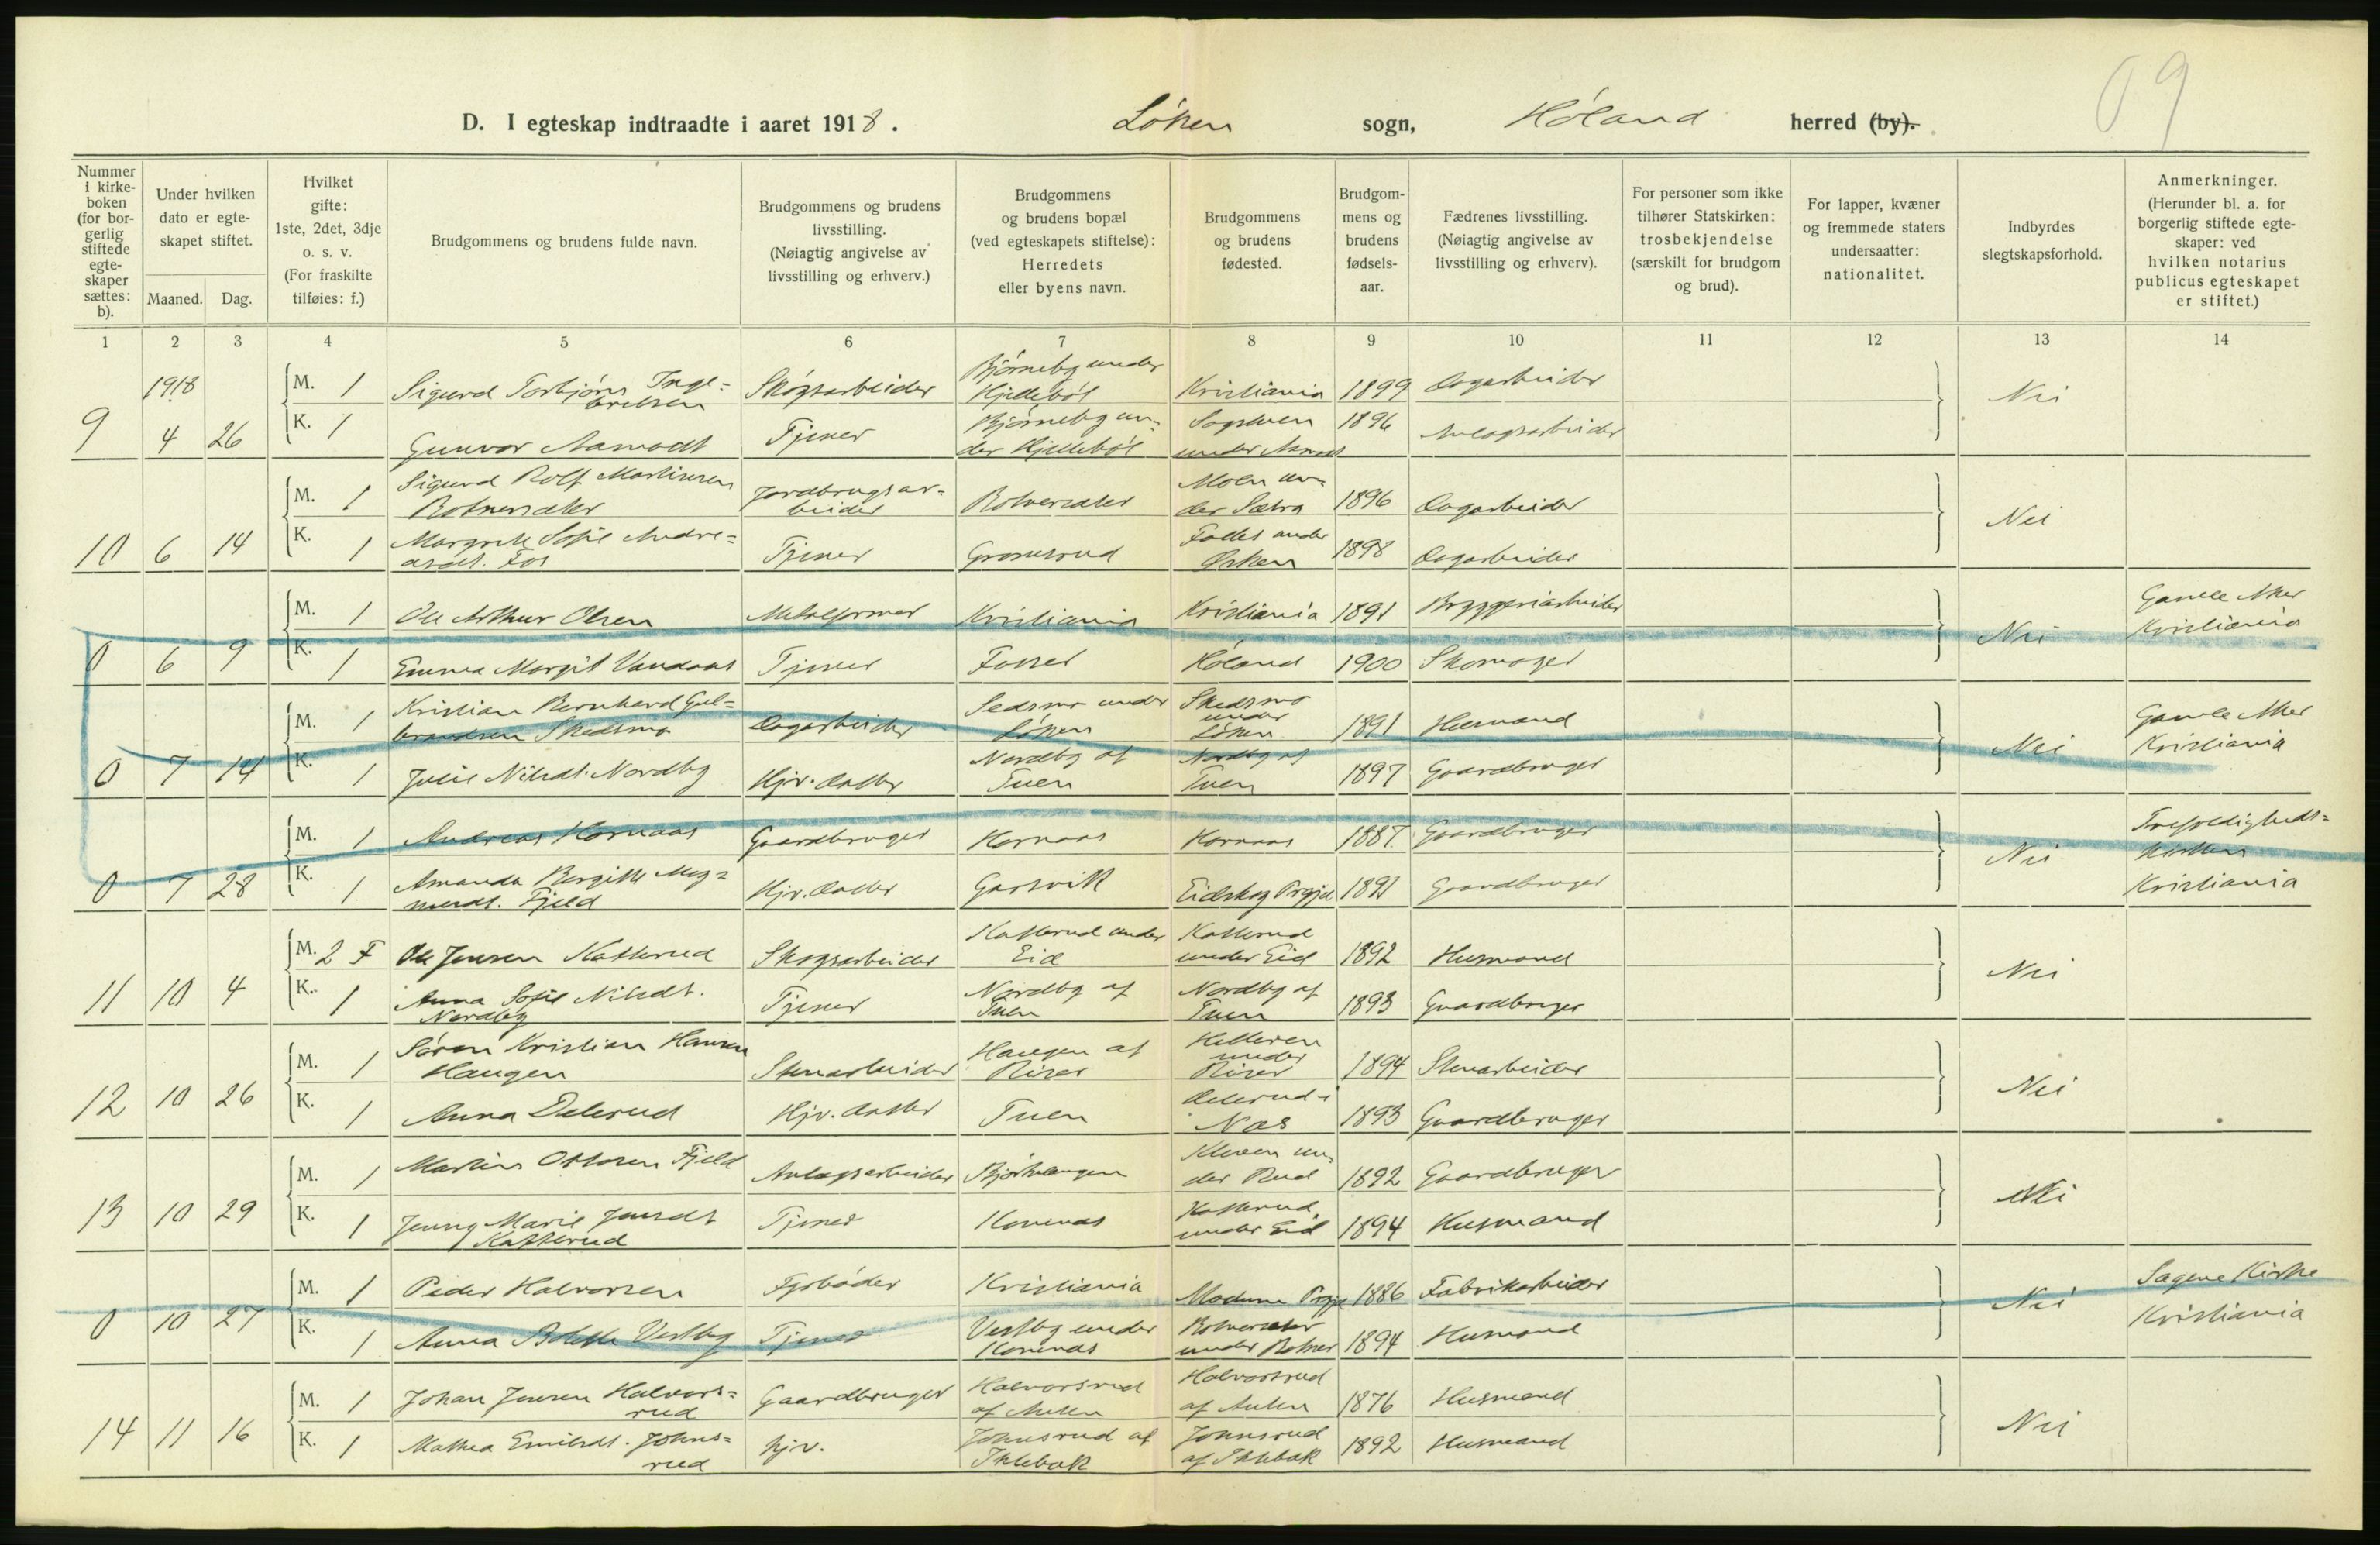 09
D. I egteskap indtraadte i aaret 1918. Løken sogn, Høland herred (by).
Nummer i kirke-boken (for bor-gerlig stiftede egte-skaper sættes: b).
Under hvilken dato er egte-skapet stiftet.
Maaned. Dag.
Hvilket gifte: 1ste, 2det, 3dje o. s. v. (For fraskilte tilføies: f.)
Brudgommens og brudens fulde navn.
Brudgommens og brudens livsstilling. (Nøiagtig angivelse av livsstilling og erhverv.)
Brudgommens og brudens bopæl (ved egteskapets stiftelse): Herredets eller byens navn.
Brudgommens og brudens fødested.
Brudgom-mens og brudens fødsels-aar.
Fædrenes livsstilling. (Nøiagtig angivelse av livsstilling og erhverv).
For personer som ikke tilhører Statskirken: trosbekjendelse (særskilt for brudgom og brud).
For lapper, kvæner og fremmede staters undersaatter: nationalitet.
Indbyrdes slegtskapsforhold.
Anmerkninger. (Herunder bl. a. for borgerlig stiftede egte-skaper: ved hvilken notarius publicus egteskapet er stiftet.)
1 2 3 4 5 6 7 8 9 10 11 12 13 14
1918
9 4 26 M. 1 Sigurd Torbjørn Inge=bretsen Skogsarbeider Bjørneby under Hjellebøl Kristiania 1899 Dagarbeider Nei
K. 1 Gunvor Aamodt Tjener Bjørneby un=der Hjellebøl under 1896 Anlægsarbeider
10 6 14 M. 1 Sigurd Rolf Martinsen Botnersdler Jordbrugsar=beider Moen un=der Sætra 1896 Dagarbeider Nei
K. 1 Margrete Sofie Andre=asdt. Fos Tjener Gromsrud under 1898 Dagarbeider
0 6 9 M. 1 Ole Arthur Olsen Metalformer Kristiania Kristiania 1891 Bryggeriarbeider Nei Gamle Aker Kristiania
K. 1 Emma Margit Vandaas Tjener Fosser Høland 1900 Skomager
0 7 14 M. 1 Kristian Bernhard Gul=brandsen Skedsmo Dagarbeider Sedsmo under Løken Skedsmo under Løken 1891 Husmand Nei Gamle Aker Kristiania
K. 1 Julie Nilsdt. Nordby Hjv. datter Nordby af Tuen Nordby af Tuen 1897 Gaardbruger
0 7 28 M. 1 Andreas Hornaas Gaardbruger Hornaas Hornaas 1887 Gaardbruger Nei Trefoldigheds=kirken Kristiania
K. 1 Amanda Bergitte Mag=nusdt. Fjeld Hjv. datter Garsvik Eidskog Prgjd. 1891 Gaardbruger
11 10 4 M. 2 F Ole Jensen Katterud Skogsarbeider Katterud under Eid Katterud under Eid 1892 Husmand Nei
K. 1 Anna Sofie Nilsdt. Nordby Tjener Nordby af Tuen Nordby af Tuen 1893 Gaardbruger
12 10 26 M. 1 Søren Kristian Hansen Haugen Stenarbeider Haugen af Riser under Riser 1894 Stenarbeider Nei
K. 1 Anna Delerud Hjv. datter Tuen Delerud i Nes 1893 Gaardbruger
13 10 29 M. 1 Martin Ottersen Fjeld Anlægsarbeider Bjørkelangen Kleven un=der Rud 1892 Gaardbruger Nei
K. 1 Jenny Marie Jensdt Katterud Tjener Korsnes Katterud under Eid 1894 Husmand
0 10 27 M. 1 Peder Halvorsen Fyrbøder Kristiania Modum Prgjd 1886 Fabrikarbeider Nei Sagene Kirke Kristiania
K. 1 Anna Bolette Vestby Tjener Vestby under Korsnes under Botner 1894 Husmand
14 11 16 M. 1 Johan Jensen Halvors=rud Gaardbruger Halvorsrud af Aulen Halvorsrud af Aulen 1876 Husmand Nei
K. 1 Mathea Emilsdt. Johns=rud hjv. Johnsrud af Ihlebæk Johnsrud af Ihlebæk 1892 Husmand